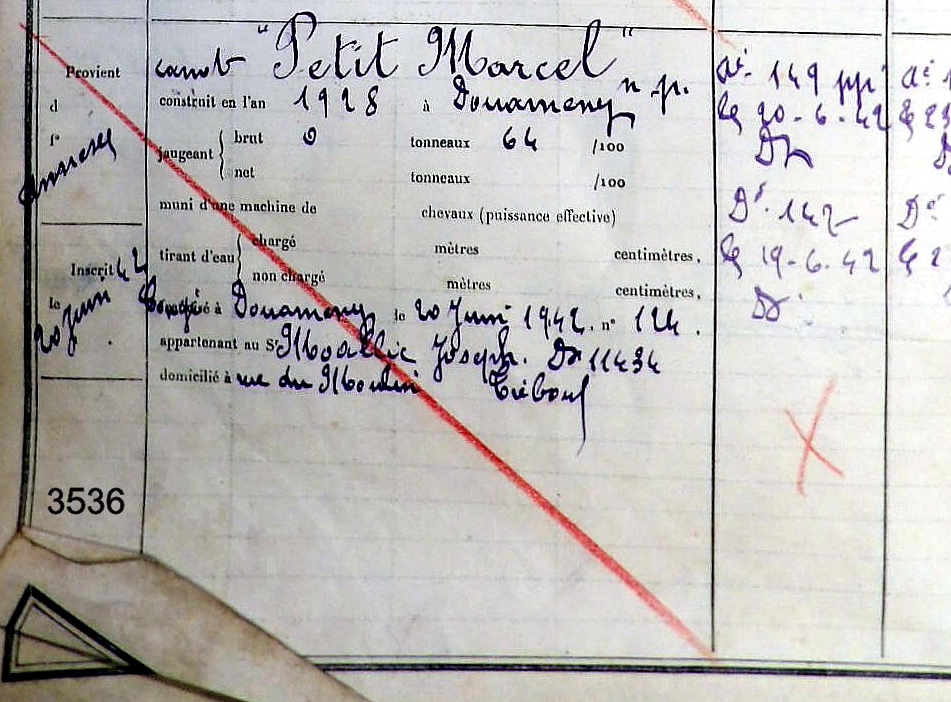 Provient
d
f°
annexe
Inscrit 42
le
20 Juin
3536
canot "Petit Marcel" n.p.
construit en l'an 1928 à Douarnenez
jaugeant { brut 0 tonneaux 64 /100
net tonneaux /100
muni d'une machine de chevaux (puissance effective)
tirant d'eau { chargé mètres centimètres,
non chargé mètres centimètres,
Congé à Douarnenez le 20 Juin 1942. n° 124.
appartenant au Sr Moallic Joseph. Dz 11434
domicilié à rue du Moulin Tréboul
At. 149 pp
le 20-6-42
Dz
Dt. 142
le 19-6-42
Dz